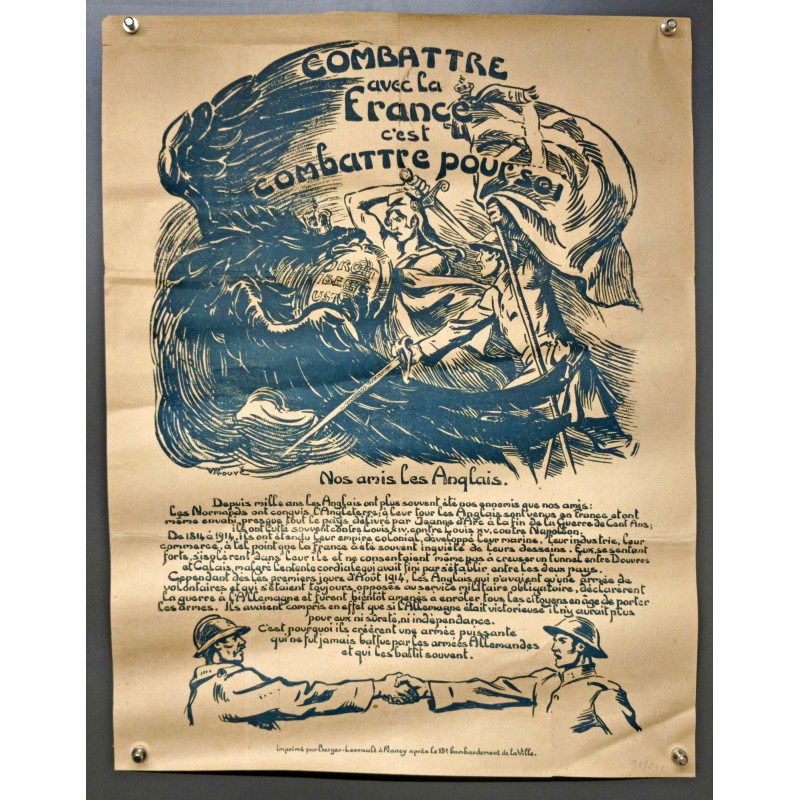 COMBATTRE
avec la
France
c'est
combattre pour soi
DROIT
LIBERTE
V. Prouvé
Nos amis les Anglais.
Depuis mille ans les Anglais ont plus souvent été nos ennemis que nos amis:
Les Normands ont conquis l'Angleterre; à leur tour les Anglais sont venus en France et ont
même envahi, presque tout le pays délivré par Jeanne d'Arc à la fin de la Guerre de Cent Ans;
ils ont lutté souvent contre Louis XIV, contre Louis XV, contre Napoléon.
De 1814 à 1914, ils ont étendu leur empire colonial, développé leur marine, leur industrie, leur
commerce, à tel point que la France a été souvent inquiète de leurs desseins. Eux, se sentant
forts, s'isolèrent dans leur île et ne consentirent même pas à creuser un tunnel entre Douvres
et Calais, malgré l'entente cordiale qui avait fini par s'établir entre les deux pays.
Cependant dès les premiers jours d'Août 1914, les Anglais qui n'avaient qu'une armée de
volontaires et qui s'étaient toujours opposés au service militaire obligatoire, déclarèrent
la guerre à l'Allemagne et furent bientôt amenés à enrôler tous les citoyens en âge de porter
les armes. Ils avaient compris en effet que si l'Allemagne était victorieuse il n'y aurait plus
pour eux ni sûreté, ni indépendance.
C'est pourquoi ils créèrent une armée puissante
qui ne fut jamais battue par les armées Allemandes
et qui les battit souvent.
Imprimé par Berger-Levrault à Nancy après le 151 bombardement de la Ville.